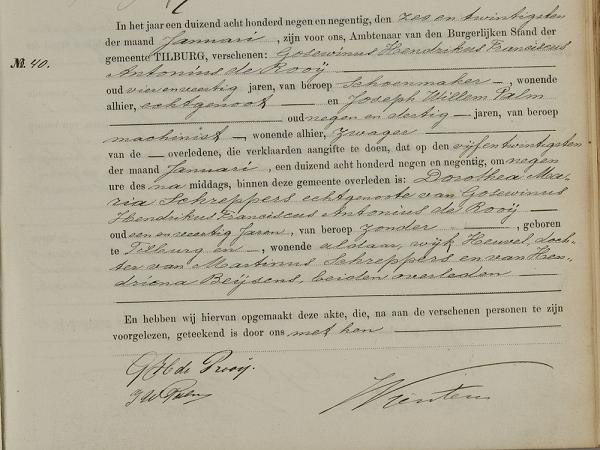 In het jaar een duizend acht honderd negen en negentig, den zes en twintigsten
der maand Januari, zijn voor ons, Ambtenaar van den Burgerlijken Stand der
gemeente TILBURG, verschenen: Gosewinus Hendrikus Franciscus
№. 40.
Antonius de Rooij
oud vier en veertig jaren, van beroep Schoenmaker, wonende
alhier, echtgenoot en Joseph Willem Palm
oud negen en dertig jaren, van beroep
machinist, wonende alhier, zwager
van de overledene, die verklaarden aangifte te doen, dat op den vijfentwintigsten
der maand Januari, een duizend acht honderd negen en negentig, om negen
ure des na middags, binnen deze gemeente overleden is: Dorothea Ma-
ria Schreppers echtgenoote van Gosewinus
Hendrikus Franciscus Antonius de Rooij
oud een en veertig Jaren, van beroep zonder, geboren
te Tilburg en, wonende aldaar, wijk Heuvel, doch-
ter van Martinus Schreppers en van Hen-
driona Beijsens, beiden overleden
En hebben wij hiervan opgemaakt deze akte, die, na aan de verschenen personen te zijn
voorgelezen, geteekend is door ons met hen
G H de Rooij.
J W Palm